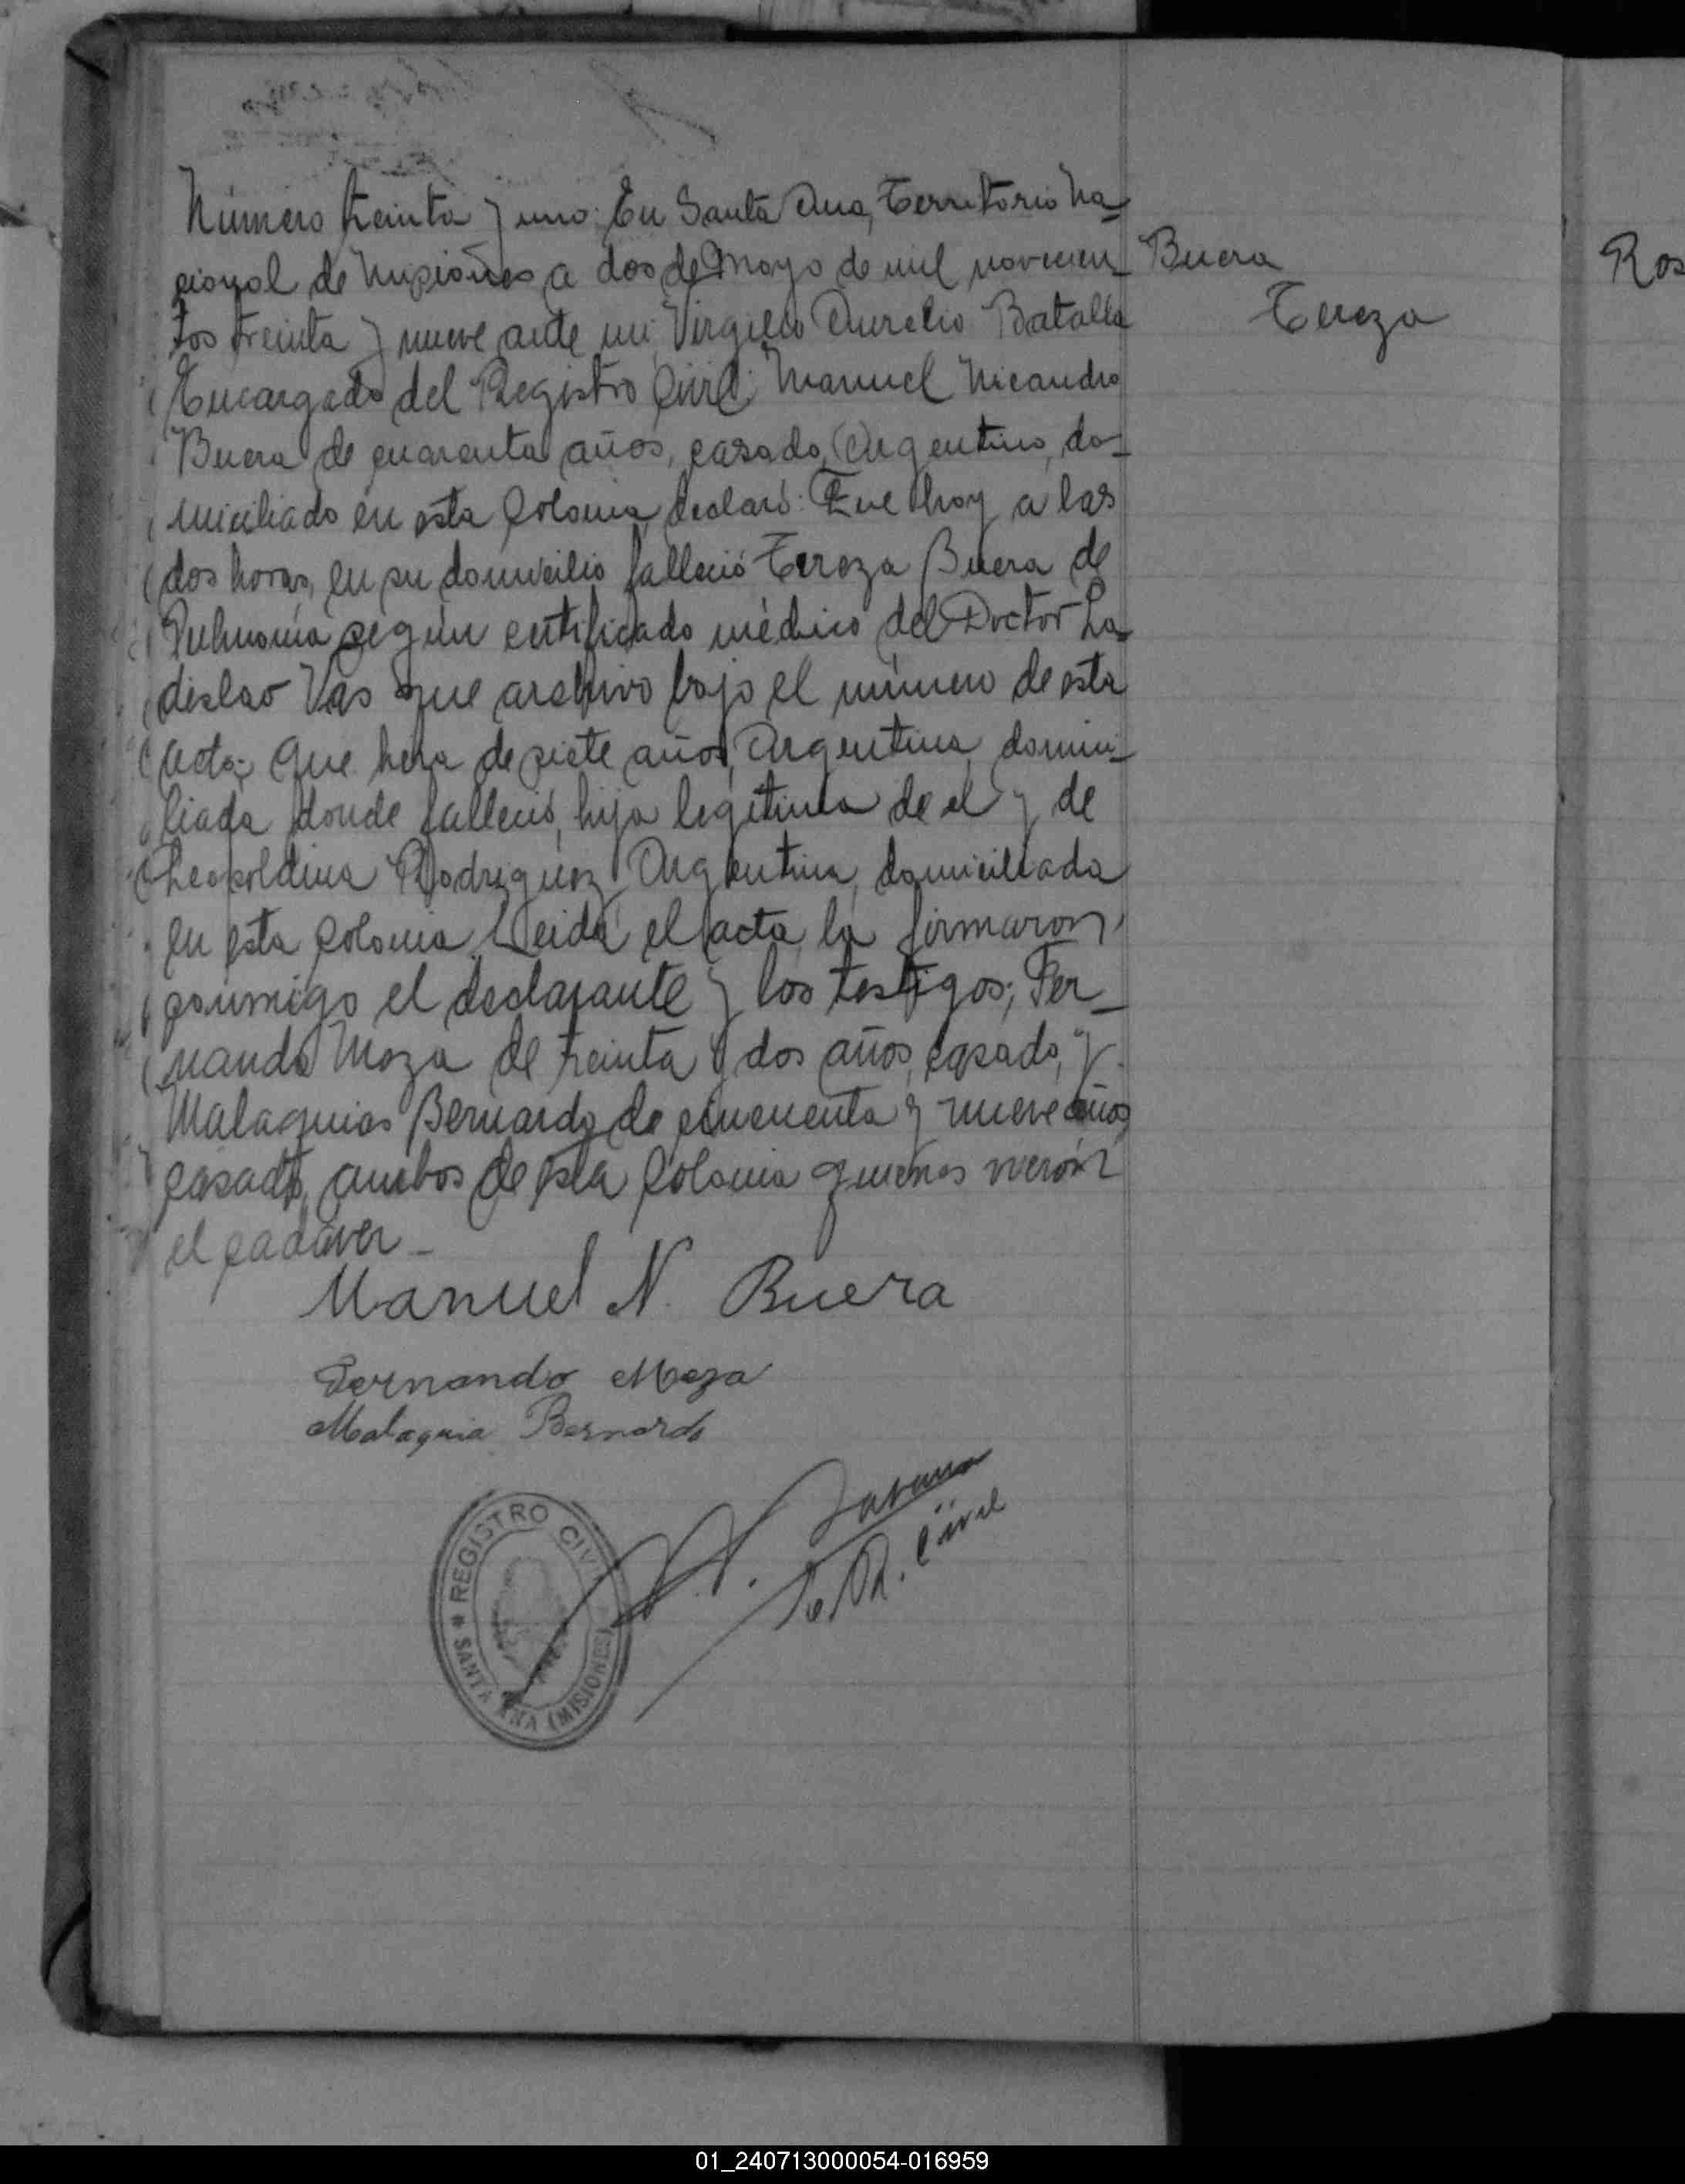 Número treinta y uno: En Santa Ana, Territorio Na-
cional de Misiones a dos de Mayo de mil novecien-
tos treinta y nueve ante mi, Virgilio Aurelio Batalla
Encargado del Registro Civil: Manuel Nicandro
Buera de cuarenta años, casado, Argentino, do-
miciliado en esta Colonia, declaró: Que hoy a las
dos horas, en su domicilio falleció Tereza Buera de
Pulmonía según certificado médico del Doctor La-
dislao Vas que archivo bajo el número de esta
acta; que hera de siete años, Argentina, domici-
liada donde falleció, hija legitima de el y de
Leopoldina Rodriguez, Argentina, domiciliada
en esta Colonia. Leida el acta, la firmaron
conmigo el declarante y los testigos; Fer-
nando Moza de treinta y dos años, casado, y
Malaquias Bernardo de cincuenta y nueve años
casado, ambos de esta Colonia quienes vieron
el cadáver_
Manuel N. Buera
Fernando Meza
Malaquia Bernardo
E. R. Civil
REGISTRO CIVIL
SANTA ANA (MISIONES)
Buera
Tereza
Ros
01_240713000054-016959